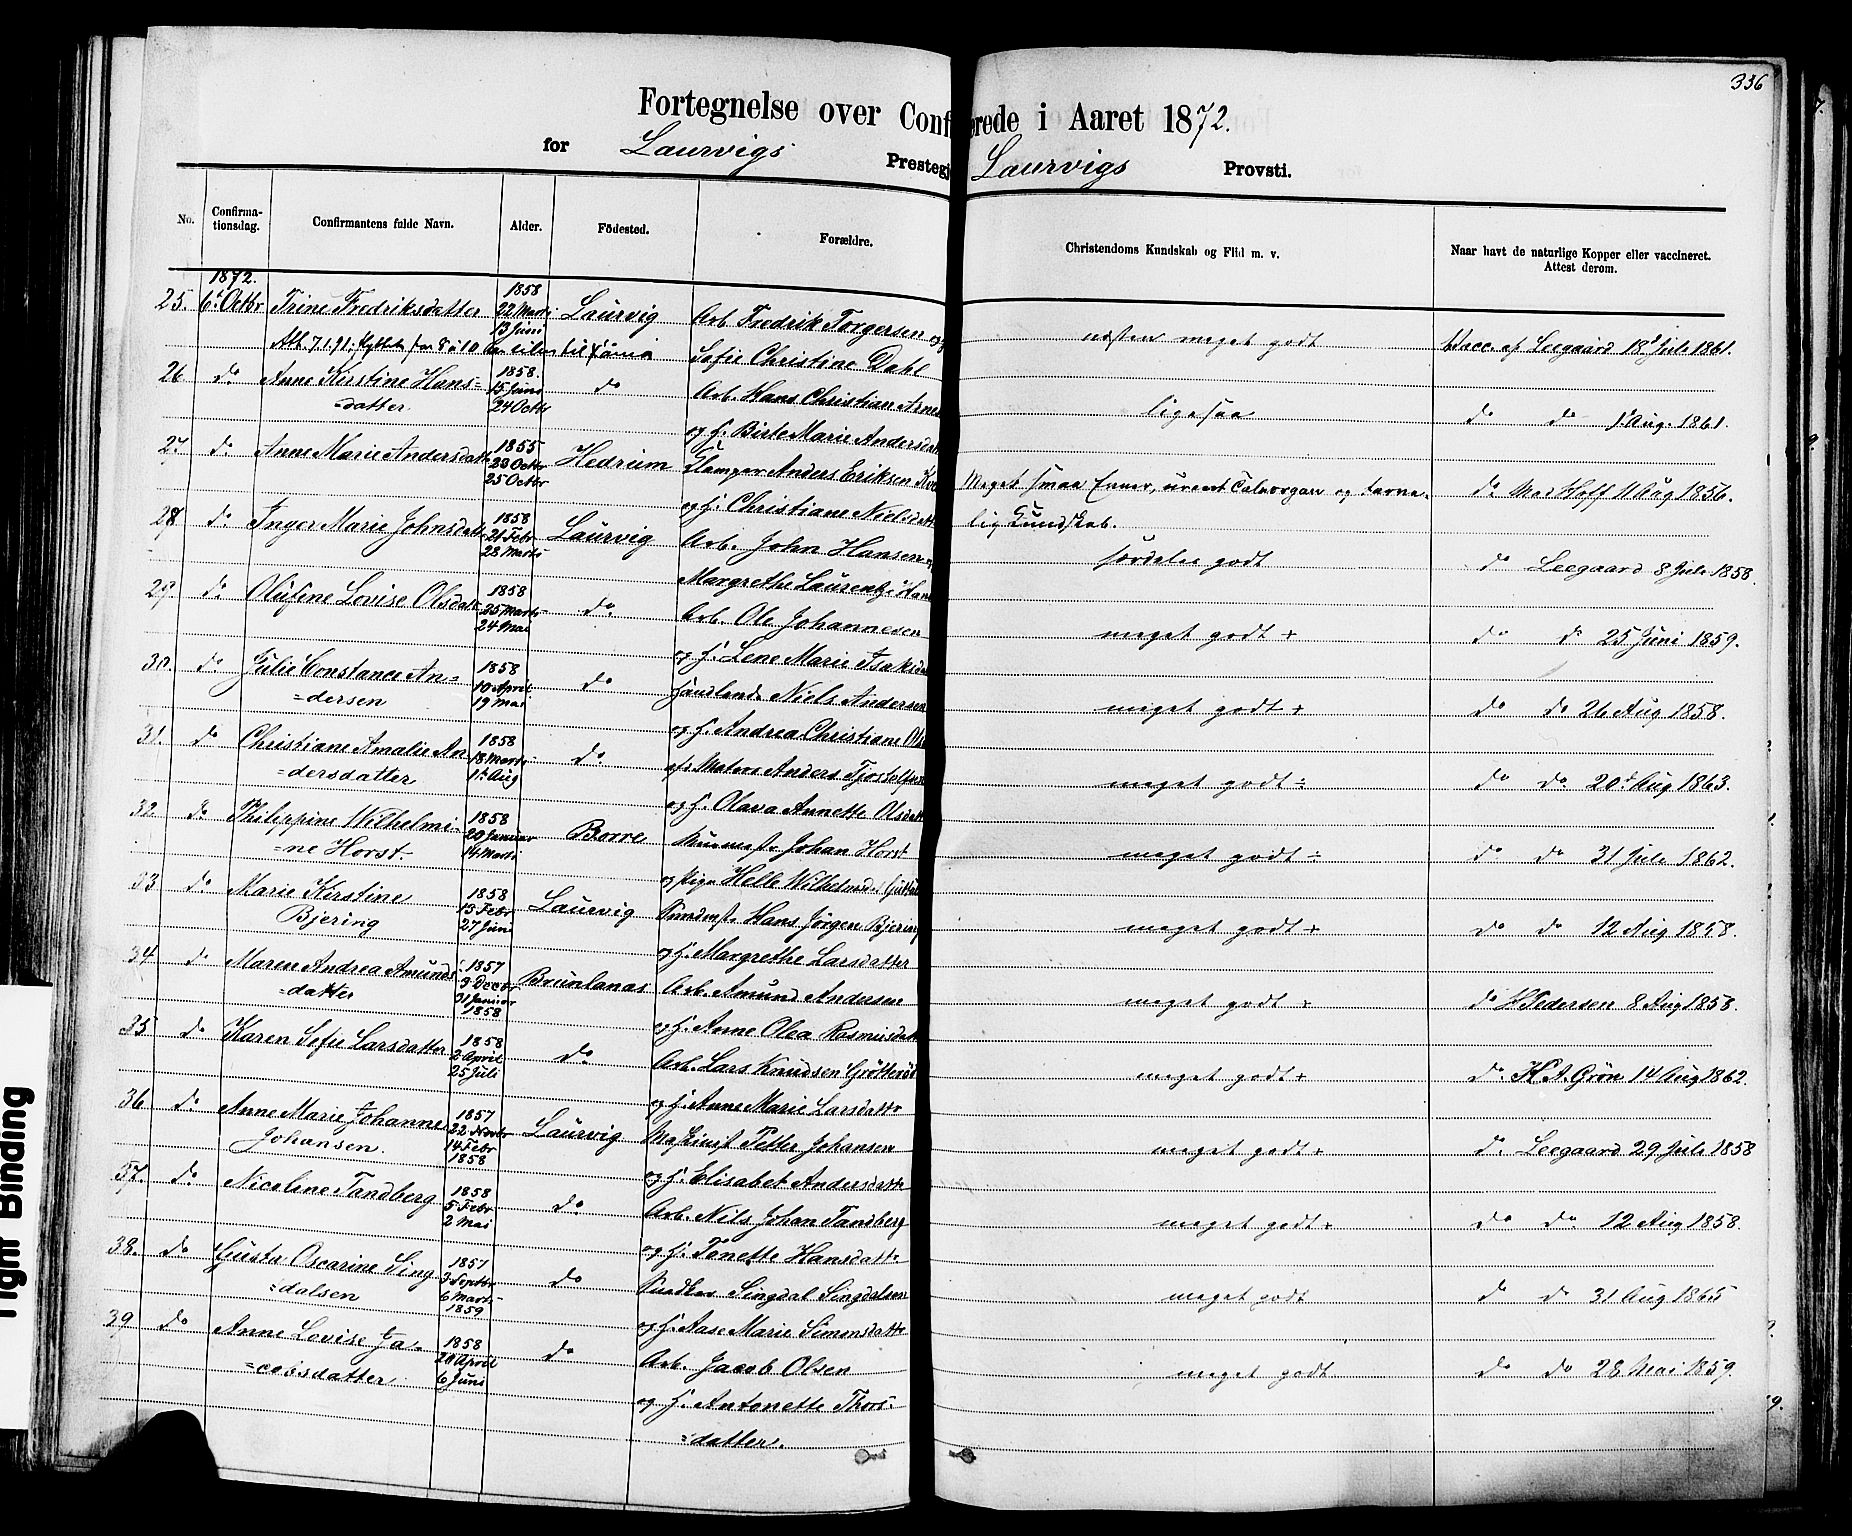 336
Fortegnelse over Conf erede i Aaret 1872.
for Laurvigs Prestegj Laurvigs Provsti.
No. Confirma-tionsdag. Confirmantens fulde Navn. Alder. Födested. Forældre. Christendoms Kundskab og Flid m. v. Naar havt de naturlige Kopper eller vaccineret. Attest derom.
1872. 1858
25. 6t Octbr Trine Fredriksdatter 22 Marts Laurvig Arb. Fredrik Torgersen og næsten meget godt Vacc. af Leegaard 18d Juli 1861.
13 Juni
Att. 7.1.91; til Sofie Christine Dahl
26 do Anne Kerstine Hans= 1858. do Arb. Hans Christian ligesaa do do 1t Aug. 1861.
=datter. 15 Juni
24 Octbr
og H. Birte Marie Andersdat
27 do Anne Marie Andersdatt 1855 Hedrum Anders Eriksen Meget smaa Evner, urent Taleorgan og tarve- do Hoff 11 Aug 1856.
23 Octbr
25 Octbr
og H. Christiane Nielsdatt lig Kundskab.
28 do Inger Marie Johnsdatt 1858 Laurvig Arb. John Hansen særdeles godt do Leegaard 8 Juli 1858.
21 Febr
28 Marts
Margrethe Laurentze Han
29 do Olufine Lovise Olsdatt 1858 do Arb. Ole Johannesen meget godt + do do 25 Juni 1859.
25 Marts
24 Mai
og H. Lene Marie Isaksda
30. do Julie Constance An= 1858 do Handlende Niels Andersen meget godt + do do 26 Aug 1858.
=dersen 10 April
19 Mai
og H. Andrea Christiane Ols
31. do Christiane Amalie An 1858 do Anders Tjostolfsen meget godt ÷ do do 20d Aug 1863.
=dersdatter 18 Marts
1t Aug
og H. Olava Annette Olsdatt
32 do Philippine Wilhelmi- 1858 Borre Johan Horst meget godt ÷ do do 31 Juli 1862.
=ne Horst. 20 Januar
14 Marts
og Pige Helle
33 do Marie Kirstine 1858 Laurvig Hans Jörgen Bjering meget godt + do do 12 Aug 1858.
Bjering 13 Febr
27 Juni
og H. Margrethe Larsdatter
34 do Maren Andrea Amunds 1857 Brunlanæs Arb. Amund Andersen meget godt + do Pedersen 8 Aug 1858.
=datter 3 Decbr
31 Januar
1858
og H. Anne Olea Rasmusdatt
35 do Karen Sofie Larsdatter 1858 do Arb. Lars Knudsen meget godt + do H. A. Grön 14 Aug 1862.
2 April
25 Juli
og H. Anne Marie Larsdattr
36 do Anne Marie Johanne 1857 Laurvig Maskinist Petter Johansen meget godt + do Leegaard 29 Juli 1858
Johansen. 22 Novbr
14 Febr
1858
og H. Elisabet Andersdattr
37. do Nicoline Tandberg 1858 do Arb. Nils Johan Tandberg meget godt + do do 12 Aug 1858.
5 Febr
2 Mai
og H. Tonette Hansdattr
38. do Gusta Oscarine Sing 1857 do Snedker Singdal Singdalsen meget godt do do 31 Aug 1865
=dalsen 3 Septbr
6 Marts
1859
og H. Aase Marie Simonsdattr
39 do Anne Lovise Ja= 1858 do Arb. Jacob Olsen meget godt. do do 28 Mai 1859.
=cobsdatter 20 April
6 Juni
og H. Antonette Thors=
=datter.
Tight Binding